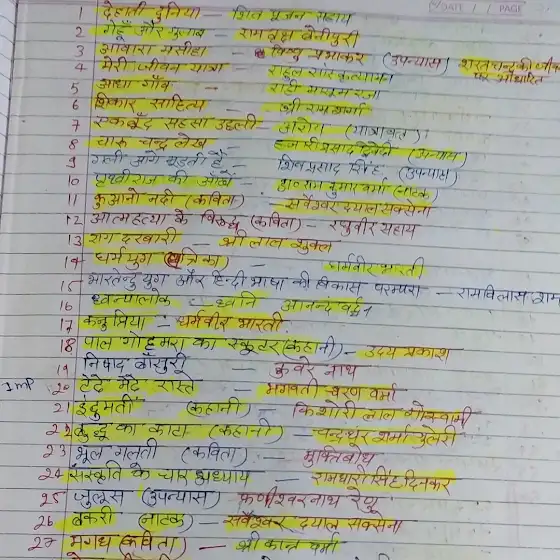 DATE / / PAGE
1 देहाती दुनिया – शिव पूजन सहाय
2 गेहूँ और गुलाब – रामवृक्ष बेनीपुरी
3 आवारा मसीहा – विष्णु प्रभाकर (उपन्यास) शरतचन्द्र की जीवनी पर आधारित
4 मेरी जीवन यात्रा – राहुल सांस्कृत्यायन
5 आधा गाँव – राही मासूम रजा
6 शिकार साहित्य – श्री राम शर्मा
7 एक बूँद सहसा उछली – अज्ञेय (यात्रावृत)
8 चारु चन्द्र लेख – हजारी प्रसाद द्विवेदी (उपन्यास)
9 गली आगे मुड़ती है – शिवप्रसाद सिंह (उपन्यास)
10 पृथ्वीराज की आँखें – डा० राम कुमार वर्मा (नाटक)
11 कुआनो नदी (कविता) – सर्वेश्वर दयाल सक्सेना
12 आत्महत्या के विरुद्ध (कविता) – रघुवीर सहाय
13 राग दरबारी – श्री लाल शुक्ल
14 धर्मयुग (पत्रिका) – धर्मवीर भारती
15 भारतेन्दु युग और हिन्दी भाषा की विकास परम्परा – रामविलास
16 ध्वन्यालोक – ध्वनि आनन्द वर्द्धन
17 कनुप्रिया – धर्मवीर भारती
18 पाल गोहमरा का स्कूटर (कहानी) – उदय प्रकाश
19 निषाद बाँसुरी – कुबेर नाथ
Imp 20 टेढ़े मेढ़े रास्ते – भगवती चरण वर्मा
21 इंदुमती (कहानी) – किशोरी लाल गोस्वामी
22 बुद्धू का काटा (कहानी) – चन्द्रधर शर्मा गुलेरी
23 भूल गलती (कविता) – मुक्तिबोध
24 संस्कृति के चार अध्याय – रामधारी सिंह दिनकर
25 जुलूस (उपन्यास) फणीश्वर नाथ रेणु
26 बकरी (नाटक) – सर्वेश्वर दयाल सक्सेना
27 मगध (कविता) – श्री कान्त वर्मा